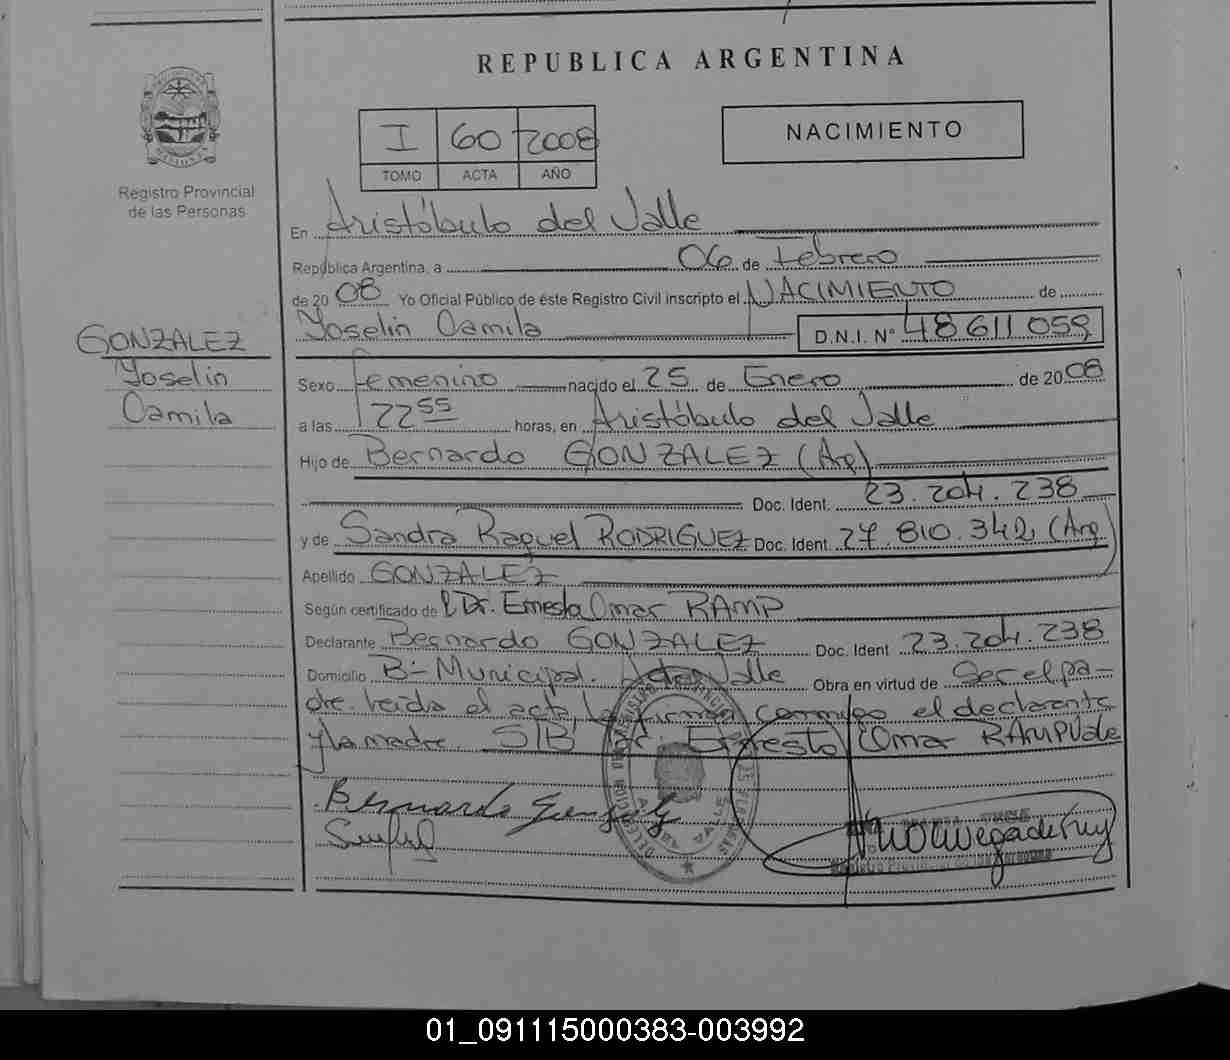 REPUBLICA ARGENTINA
I 60 2008
TOMO ACTA AÑO
NACIMIENTO
Registro Provincial
de las Personas
En Aristóbulo del Valle
República Argentina, a 06 de Febrero
de 2008 Yo Oficial Público de éste Registro Civil inscripto el NACIMIENTO de
Yoselin Camila D.N.I. N° 48 611 059
GONZALEZ
Yoselin
Camila
Sexo femenino nacido el 25 de Enero de 2008
a las 22 55 horas, en Aristóbulo del Valle
Hijo de Bernardo GONZALEZ (Arg)
Doc. Ident. 23.204.238
y de Sandra Raquel RODRIGUEZ Doc. Ident. 27.810.342 (Arg)
Apellido GONZALEZ
Según certificado de l Dr. Ernesto Omar RAMP
Declarante Bernardo GONZALEZ Doc. Ident 23.204.238
Domicilio B- Municipal. A del Valle Obra en virtud de Ser el pa-
dre. leida el acta, la firman conmigo el declarante
y la madre. S/B Dr. Ernesto Omar RAMP Vale
Bernardo Gonzalez
01_091115000383-003992